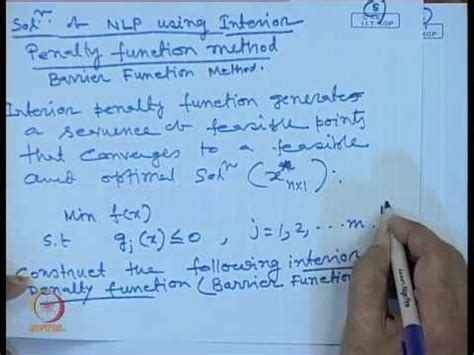 Solⁿ of NLP using Interior
Penalty function method
Barrier Function Method.
Interior penalty function generates
a sequence of feasible points
that converges to a feasible
and optimal Solⁿ (x*ₙₓ₁).
Min f(x)
s.t gⱼ(x) ≤ 0 , j = 1, 2, ... m .
Construct the following interior
penalty function (Barrier Function
I.I.T. KGP
NPTEL